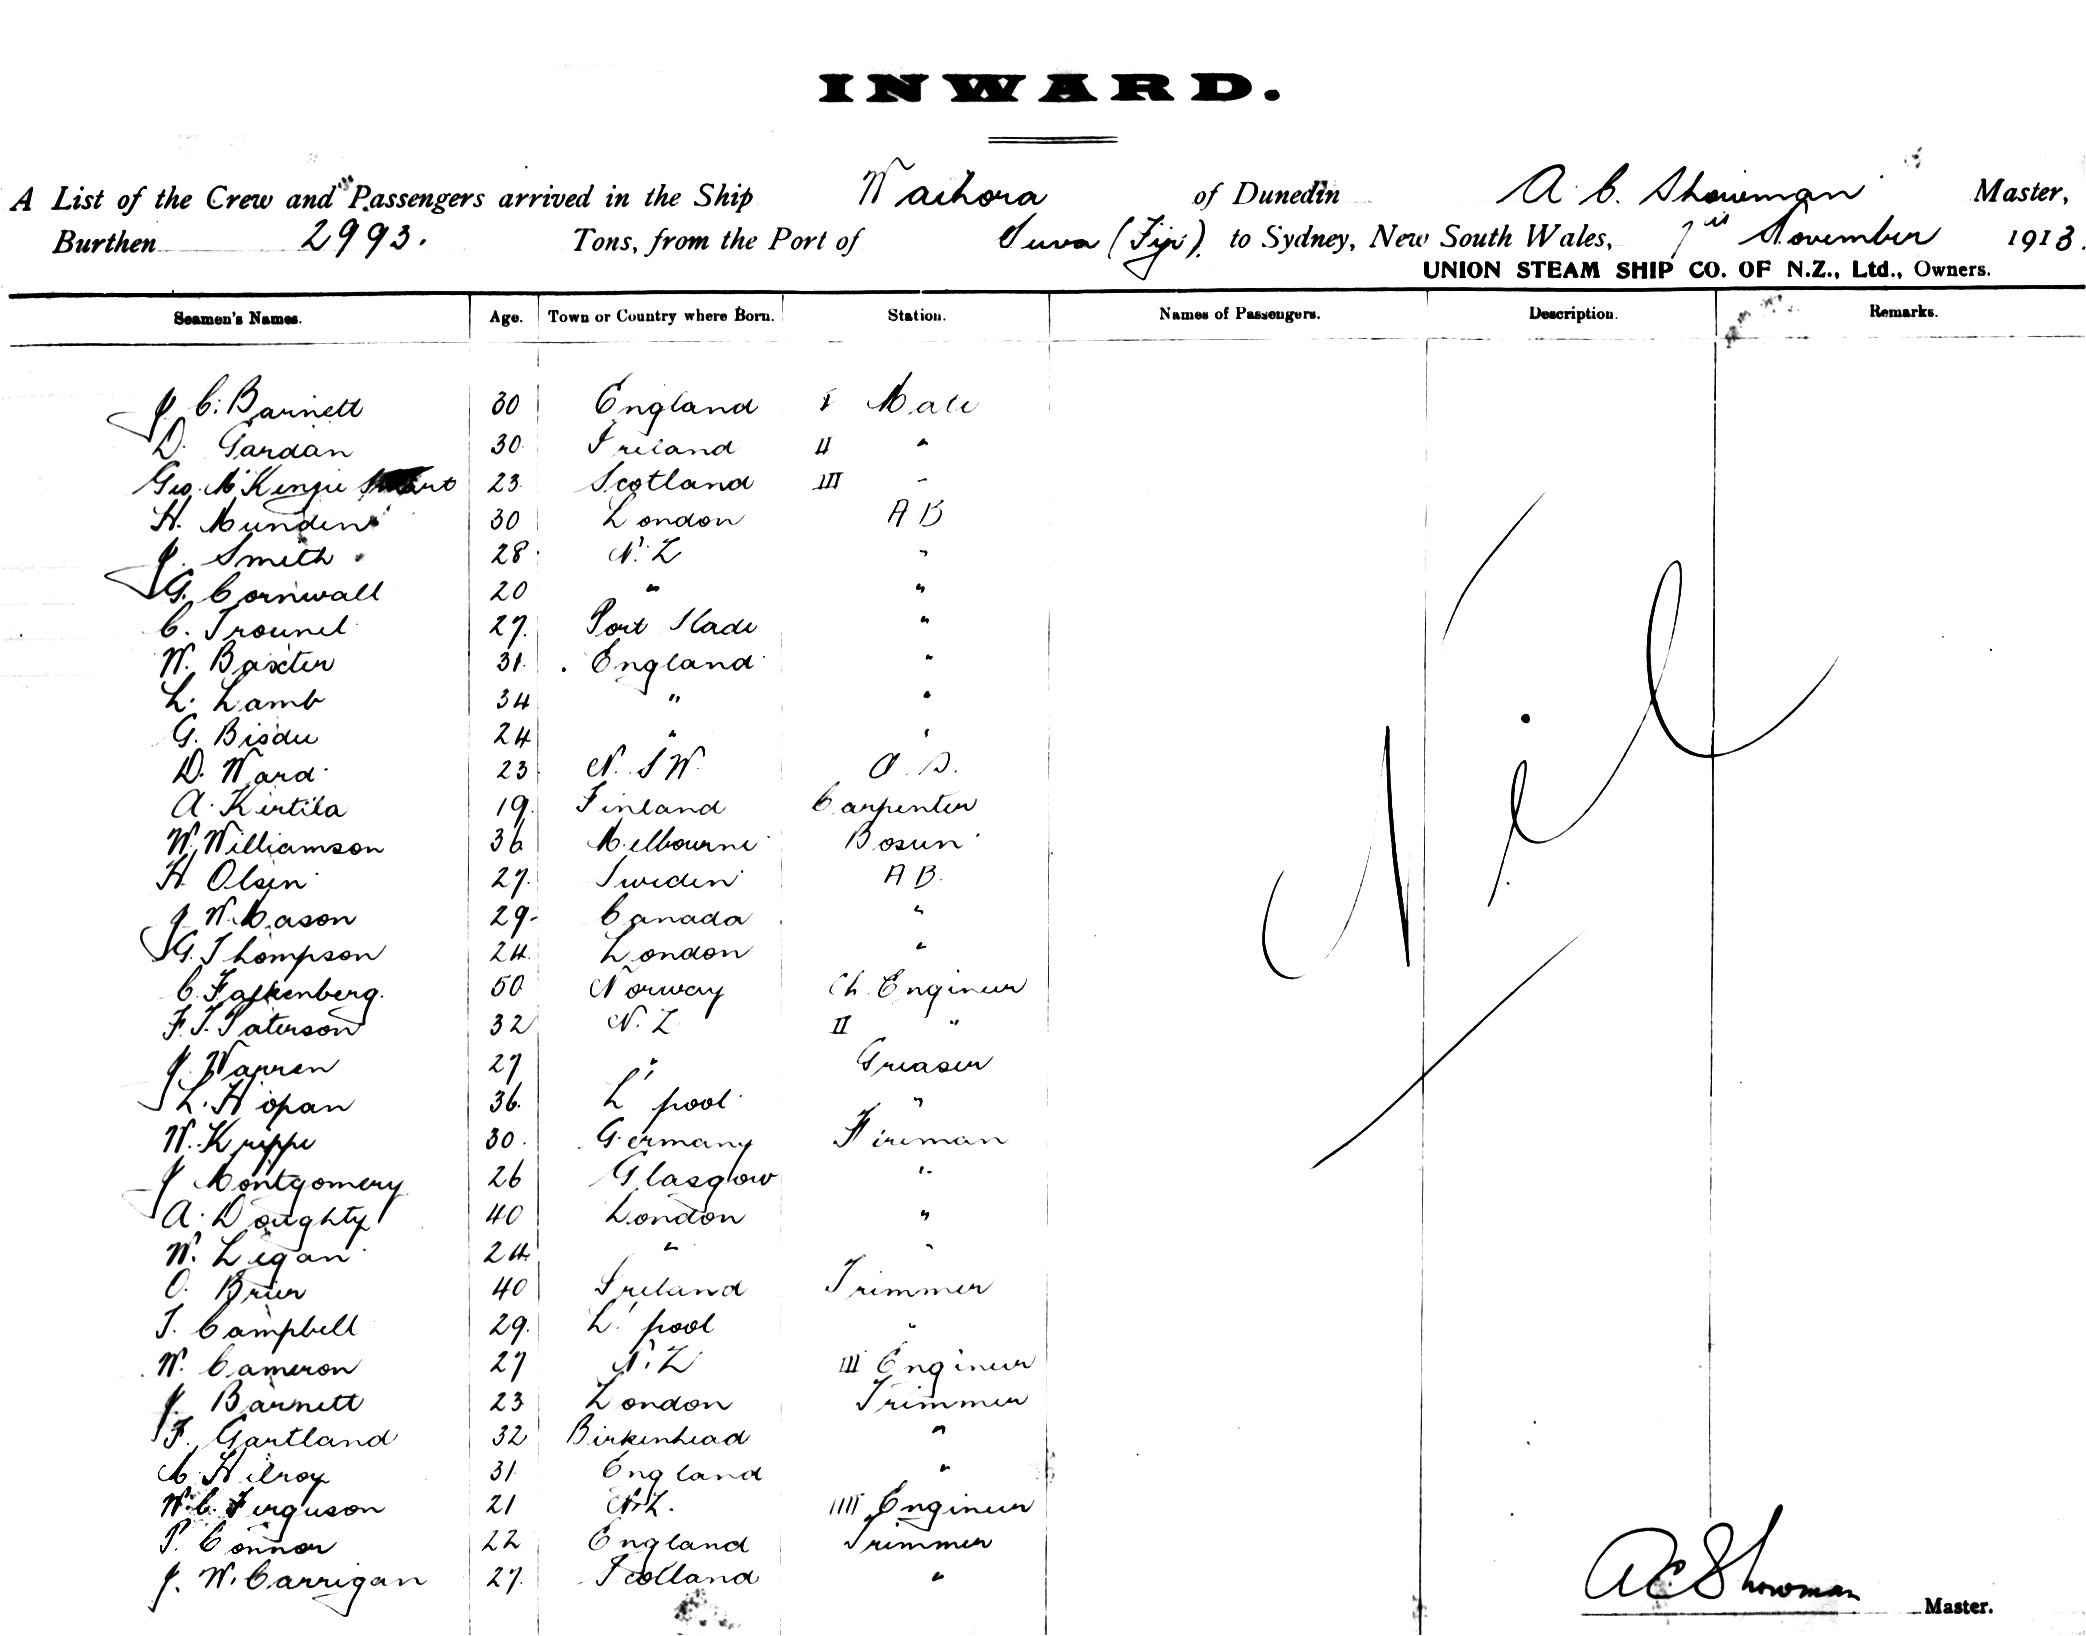 INWARD.
A List of the Crew and Passengers arrived in the Ship Waihora of Dunedin A. C. Showman Master,
Burthen 2993. Tons, from the Port of Suva (Fiji) to Sydney, New South Wales, 1st November 1913.
UNION STEAM SHIP CO. OF N.Z., Ltd., Owners.
Seamen's Names. Age. Town or Country where Born. Station. Names of Passengers. Description. Remarks.
J C. Barnett 30 England I Mate
D. Gardan 30 Ireland II "
Geo. McKenzie 23 Scotland III "
H. Munden 30 London A B
J. Smith 28 N.Z "
G. Cornwall 20 " "
C. Trounel 27. Port Slade "
W. Baxter 31. England "
L. Lamb 34 " "
G. Bisdee 24 " "
D. Ward 23 N.S.W. O.S.
A. Kirtila 19. Finland Carpenter
W. Williamson 36 Melbourne Bosun
H Olsen 27. Sweden A B.
J W. Mason 29 Canada "
G. Thompson 24. London "
C. Falkenberg. 50 Norway Ch. Engineer
F. T. Paterson 32 N.Z II "
J. Warren 27 " Greaser
L. Hopan 36. L'pool "
W. Krippe 30. Germany Fireman
J Montgomery 26 Glasgow "
A. Doughty 40 London "
W. Legan 24. " "
O. Brier 40 Ireland Trimmer
T. Campbell 29. L'pool "
W. Cameron 27 N.Z III Engineer
J. Barnett 23 London Trimmer
F. Gartland 32 Birkenhead "
M. Hilroy 31 England "
W. C. Ferguson 21 N.Z. IIII Engineer
P. Connor 22 England Trimmer
J. W. Carrigan 27. Scotland "
Nil
A C Showman Master.